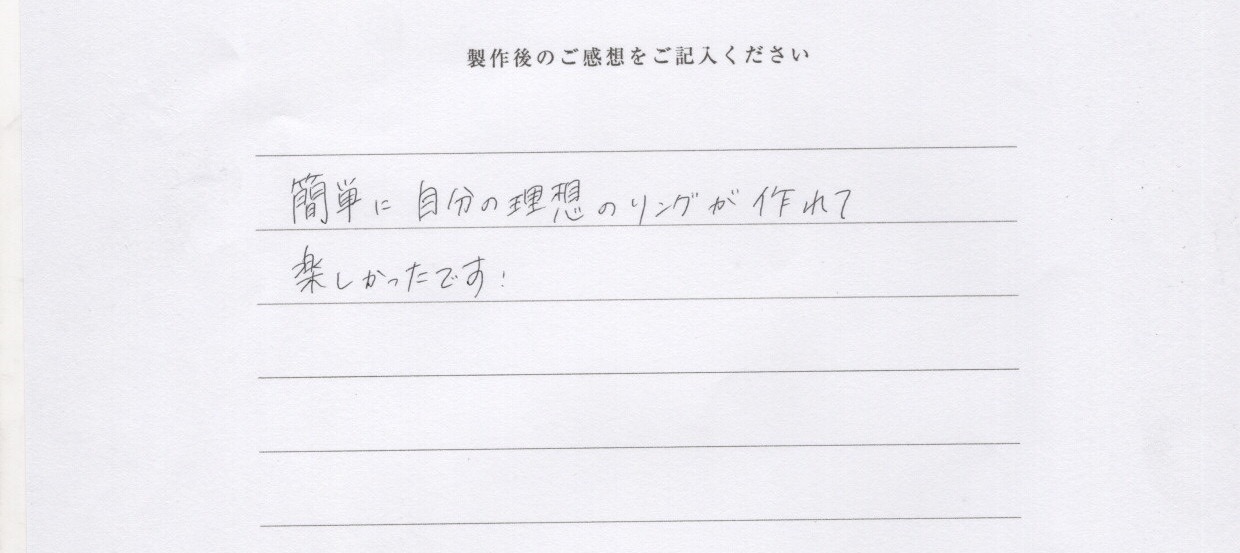 製作後のご感想をご記入ください
簡単に自分の理想のリングが作れて
楽しかったです!